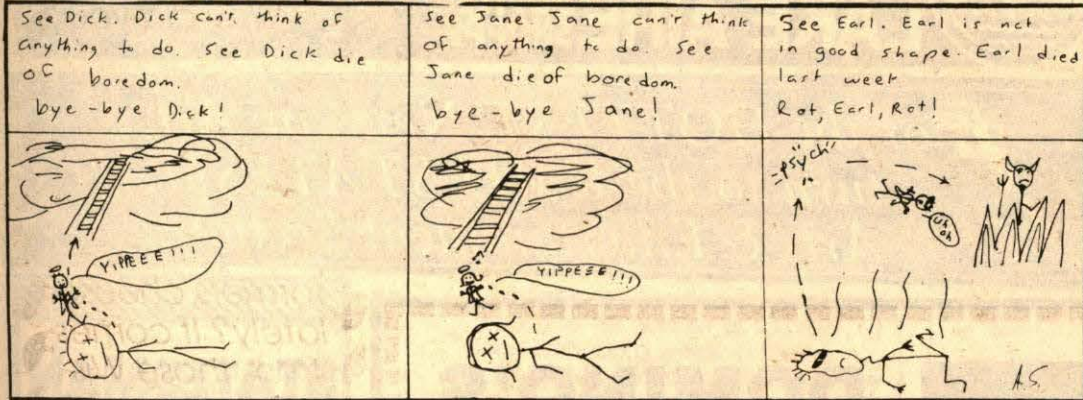 See Dick. Dick can't think of
anything to do. See Dick die
of boredom.
bye-bye Dick!
See Jane. Jane can't think
of anything to do. See
Jane die of boredom.
bye-bye Jane!
See Earl. Earl is not
in good shape. Earl died
last week
Rot, Earl, Rot!
YIPPEEE!!!
YIPPEEE!!!
"psych"
uh
oh
A.S.